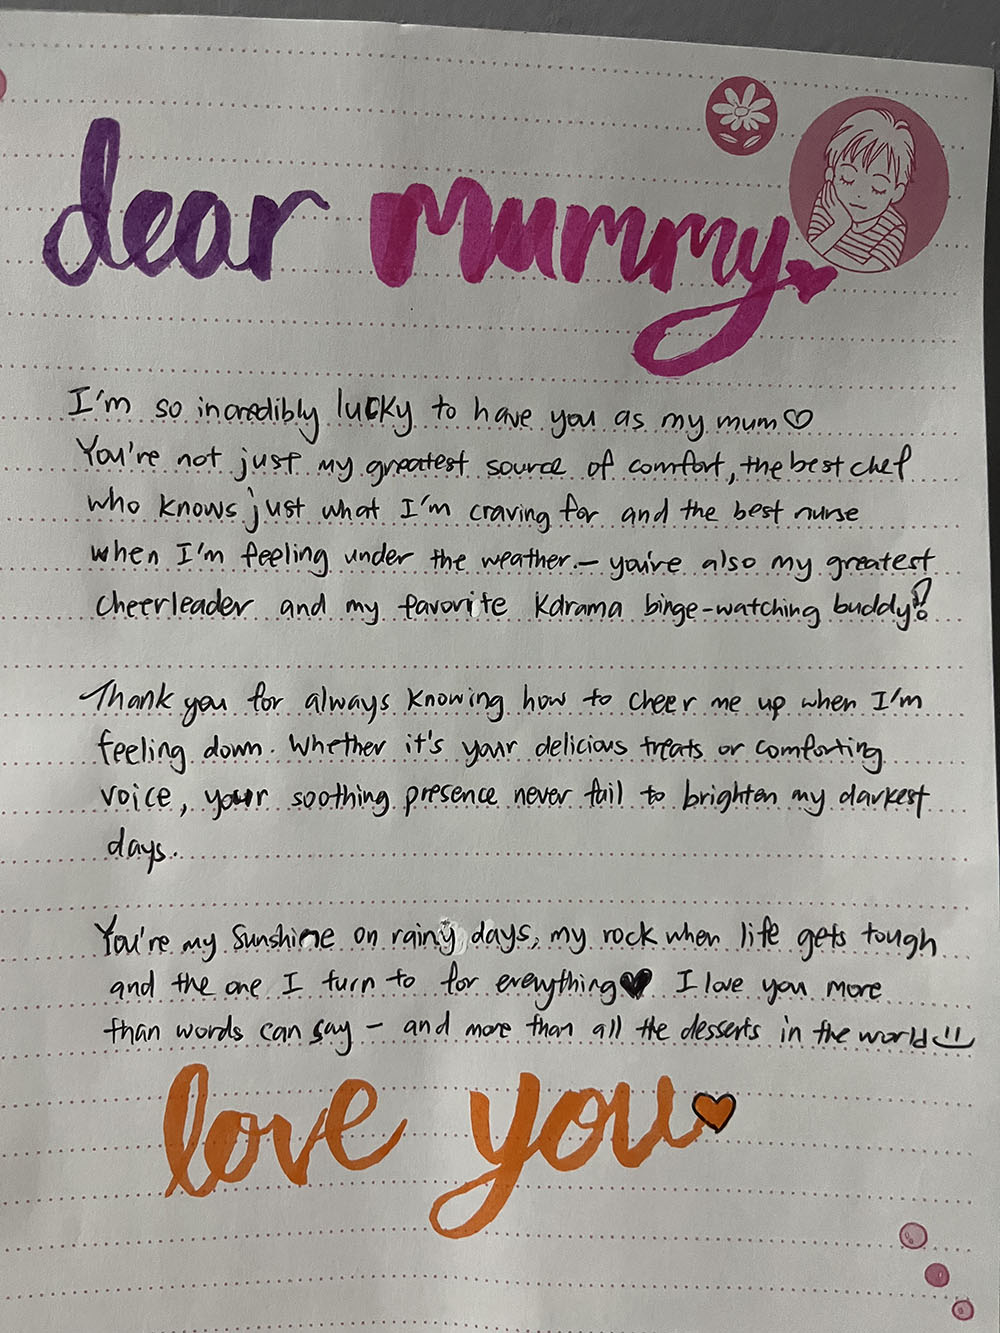 dear mummy
I'm so incredibly lucky to have you as my mum♡
You're not just my greatest source of comfort, the best chef
who knows just what I'm craving for and the best nurse
when I'm feeling under the weather — you're also my greatest
cheerleader and my favorite Kdrama binge-watching buddy!
Thank you for always knowing how to cheer me up when I'm
feeling down. Whether it's your delicious treats or comforting
voice, your soothing presence never fail to brighten my darkest
days.
You're my sunshine on rainy days, my rock when life gets tough
and the one I turn to for everything♥ I love you more
than words can say – and more than all the desserts in the world :)
love you♥